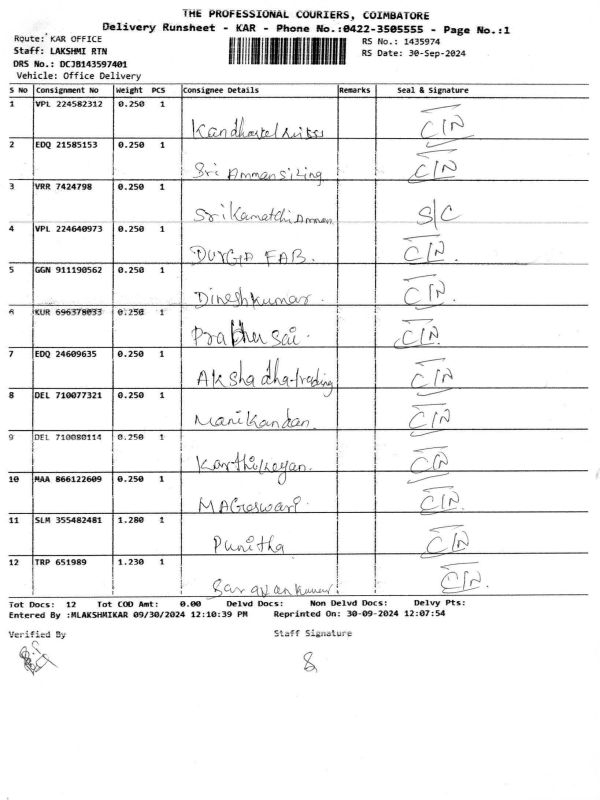 THE PROFESSIONAL COURIERS, COIMBATORE
Delivery Runsheet - KAR - Phone No.:0422-3505555 - Page No.:1
Route: KAR OFFICE
RS No.: 1435974
Staff: LAKSHMI RTN
RS Date: 30-Sep-2024
DRS No.: DCJB143597401
Vehicle: Office Delivery
S No Consignment No Weight PCS Consignee Details Remarks Seal & Signature
1 VPL 224582312 0.250 1 C/N
2 EDQ 21585153 0.250 1 Sri Amman Sizing C/N
3 VRR 7424798 0.250 1 Sri Kamatchi Amman S/C
4 VPL 224640973 0.250 1 DURGA FAB. C/N.
5 GGN 911190562 0.250 1 Dineshkumar. C/N.
6 KUR 696378033 0.250 1 Prabhu Sai. C/N.
7 EDQ 24609635 0.250 1 Akshadha trading C/N
8 DEL 710077321 0.250 1 Manikandan. C/N
9 DEL 710080114 0.250 1 Karthikeyan. C/N
10 MAA 866122609 0.250 1 MAGeswari. C/N
11 SLM 355482481 1.280 1 Punitha C/N
12 TRP 651989 1.230 1 Saravankumar C/N.
Tot Docs: 12 Tot COD Amt: 0.00 Delvd Docs: Non Delvd Docs: Delvy Pts:
Entered By :MLAKSHMIKAR 09/30/2024 12:10:39 PM Reprinted On: 30-09-2024 12:07:54
Verified By Staff Signature